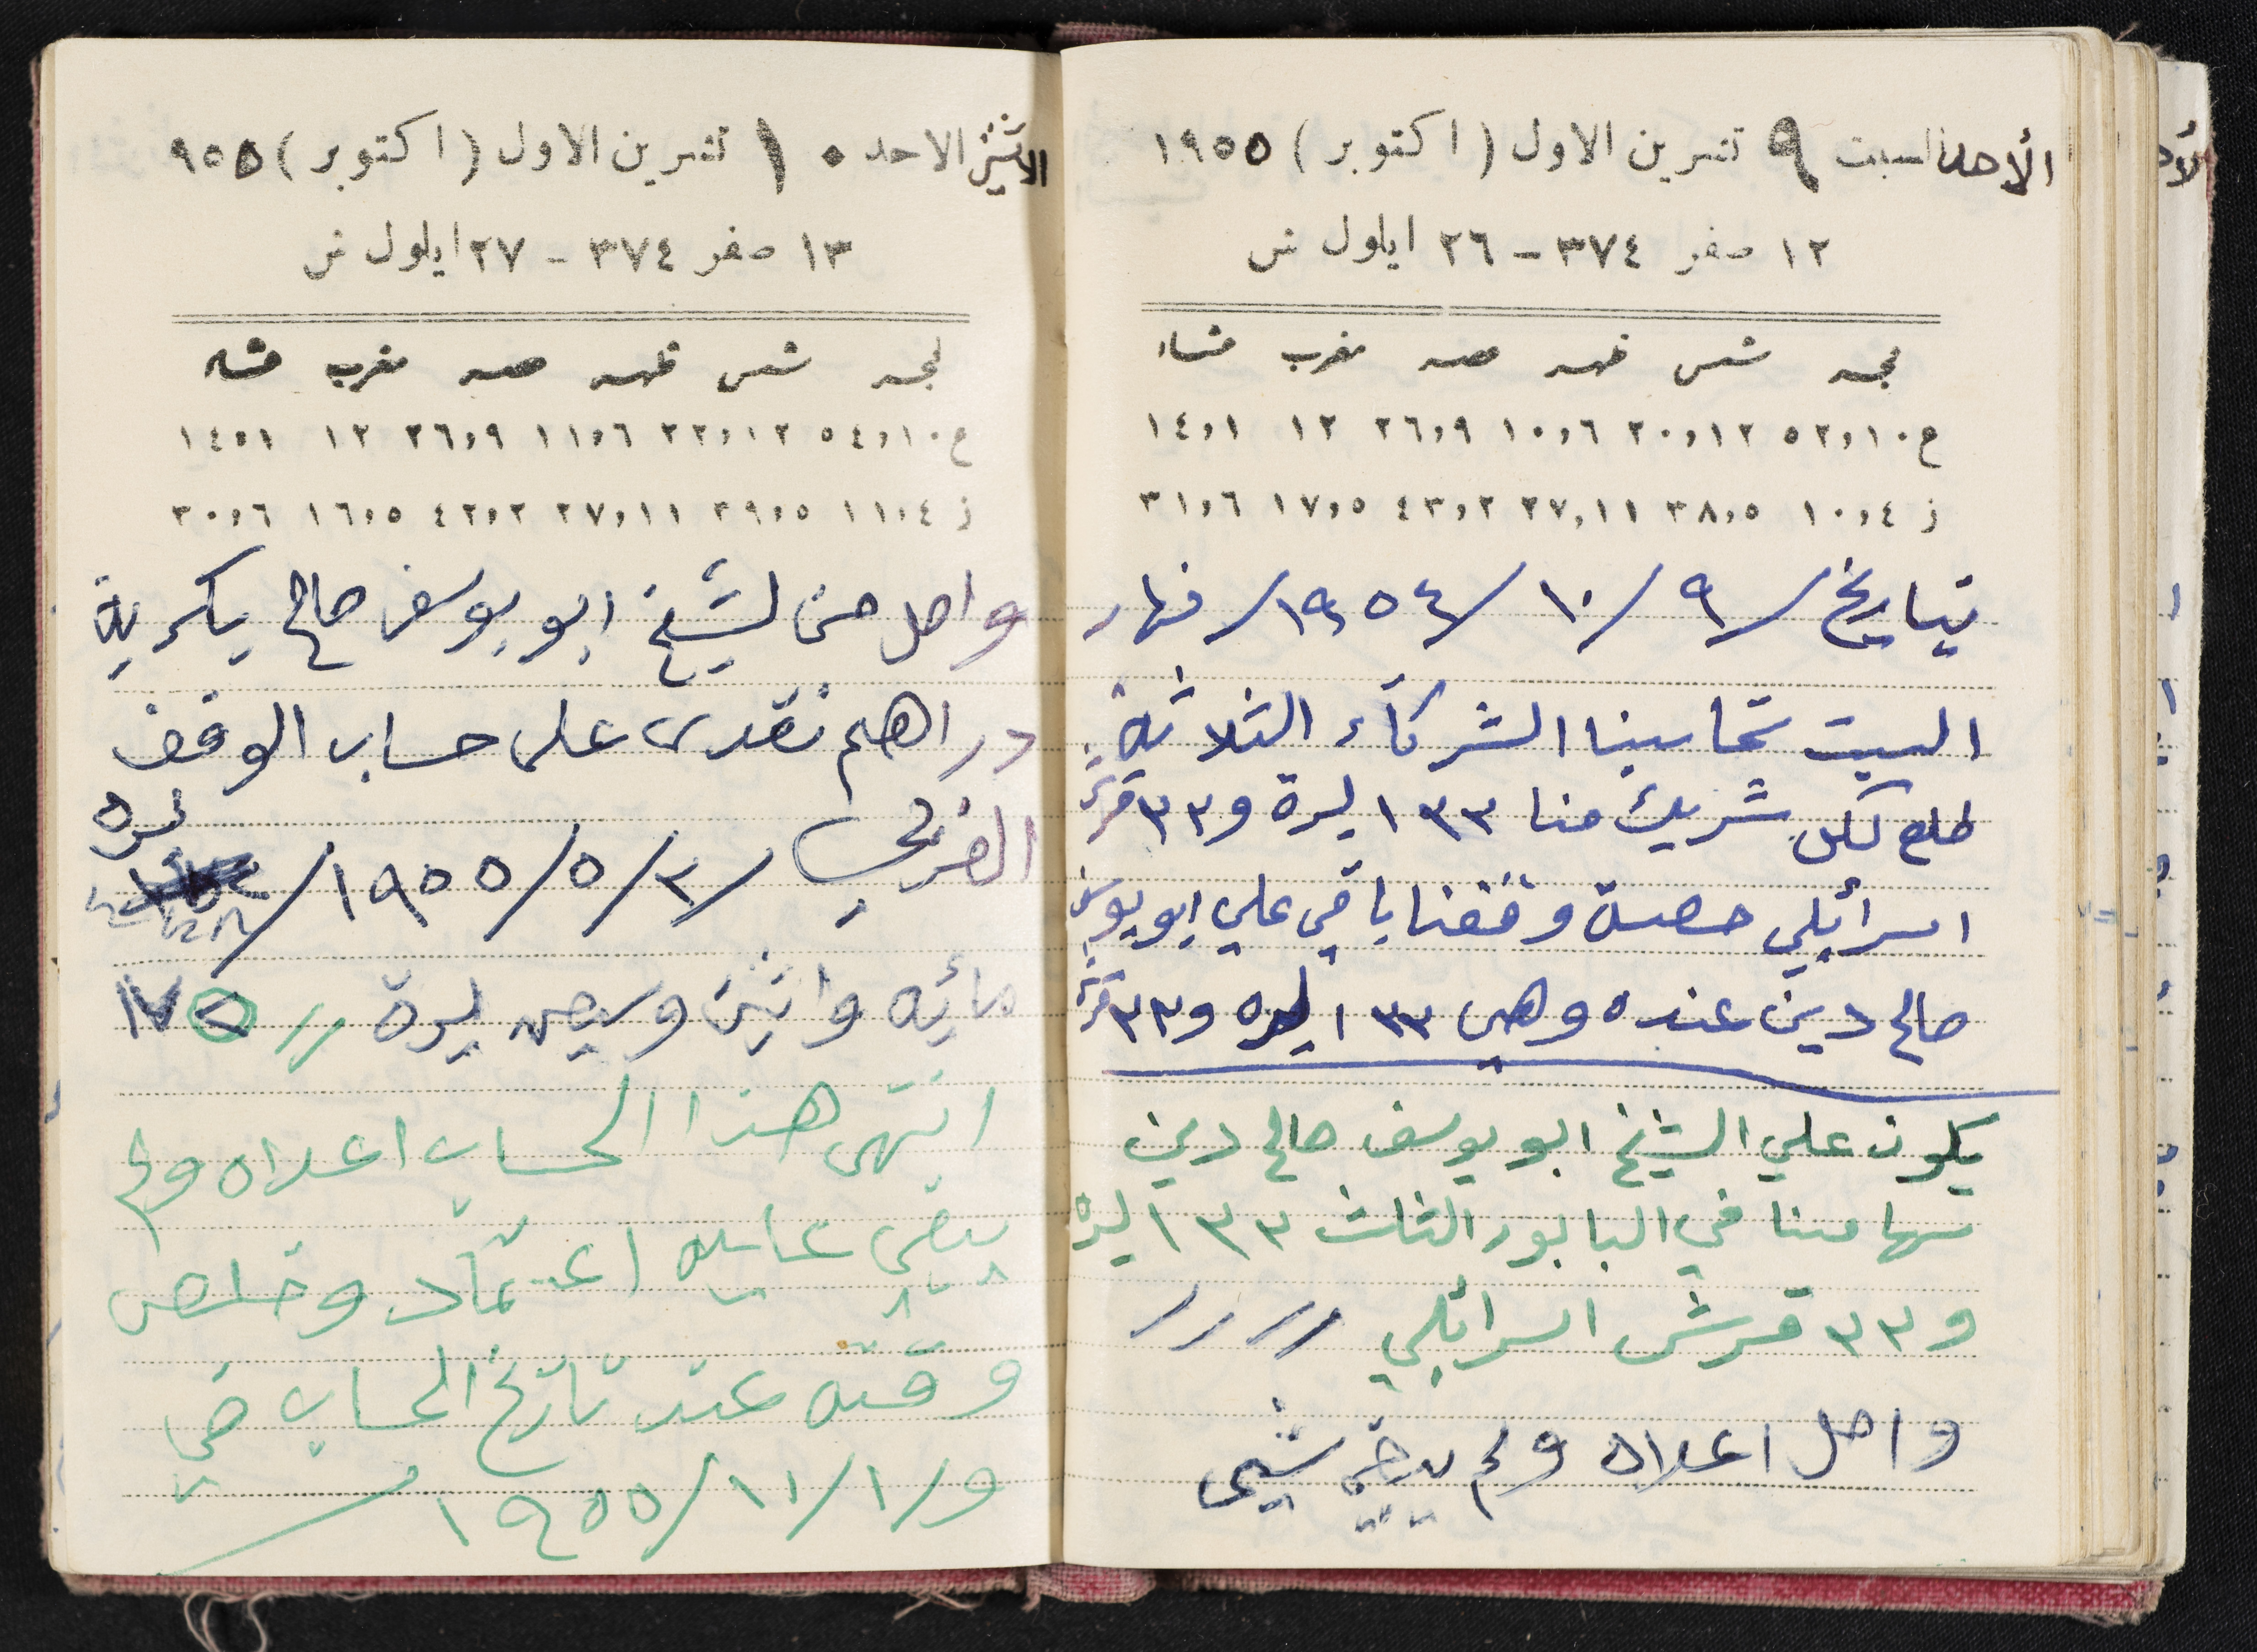 الأحد السبت ٩ تشرين الاول (اكتوبر) ١٩٥٥
١٢ صفر ٣٧٤ - ٢٦ ايلول ش
فجر شمس ظهر عصر مغرب عشاء
ع ٥٢,١٠ ٢٠,١٢ ١٠,٦ ٢٦,٩ ١٢ ١٤,١
ز ١٠,٤ ٣٨,٥ ٢٧,١١ ٤٣,٢ ١٧,٥ ٣١,٦
بتاريخ /٩/١٠/١٩٥٤/ نهار
السبت تحاسبنا الشركاء الثلاثة
طلع لكل شريك منا ١٣٣ ليرة و٣٣ قرش
اسرائلي حصة وقفنا باقي علي ابو يوسف
صالح دين عنده وهي ١٣٣ ليره و٣٣ قرش
يكون علي الشيخ ابو يوسف صالح دين
سهامنا في البابور الثالث ١٣٣ ليره
و٣٣ قرش اسرائلي ////
واصل اعلاه ولم يبقى شيى
الاثنين الاحد ١٠ تشرين الاول (اكتوبر) ٩٥٥
١٣ صفر ٣٧٤ - ٢٧ ايلول ش
فجر شمس ظهر عصر مغرب عشاء
ع ٥٤,١٠ ٢٢,١٢ ١١,٦ ٢٦,٩ ١٢ ١٤,١
ز ١١,٤ ٣٩,٥ ٢٧,١١ ٤٢,٢ ١٦,٥ ٣٠,٦
واصل من لشيخ ابو يوسف صالح
دراهم نقدى على حساب الوقف
/٣/٥/١٩٥٥/ ليره
مائه واثنين وسبعين ليرة // ١٧٥
انتهى هذا الحساب اعلاه ولم
يبقى عليه اعتماد وخلص
وقته عند تاريخ الحساب في
و/١/١١/١٩٥٥